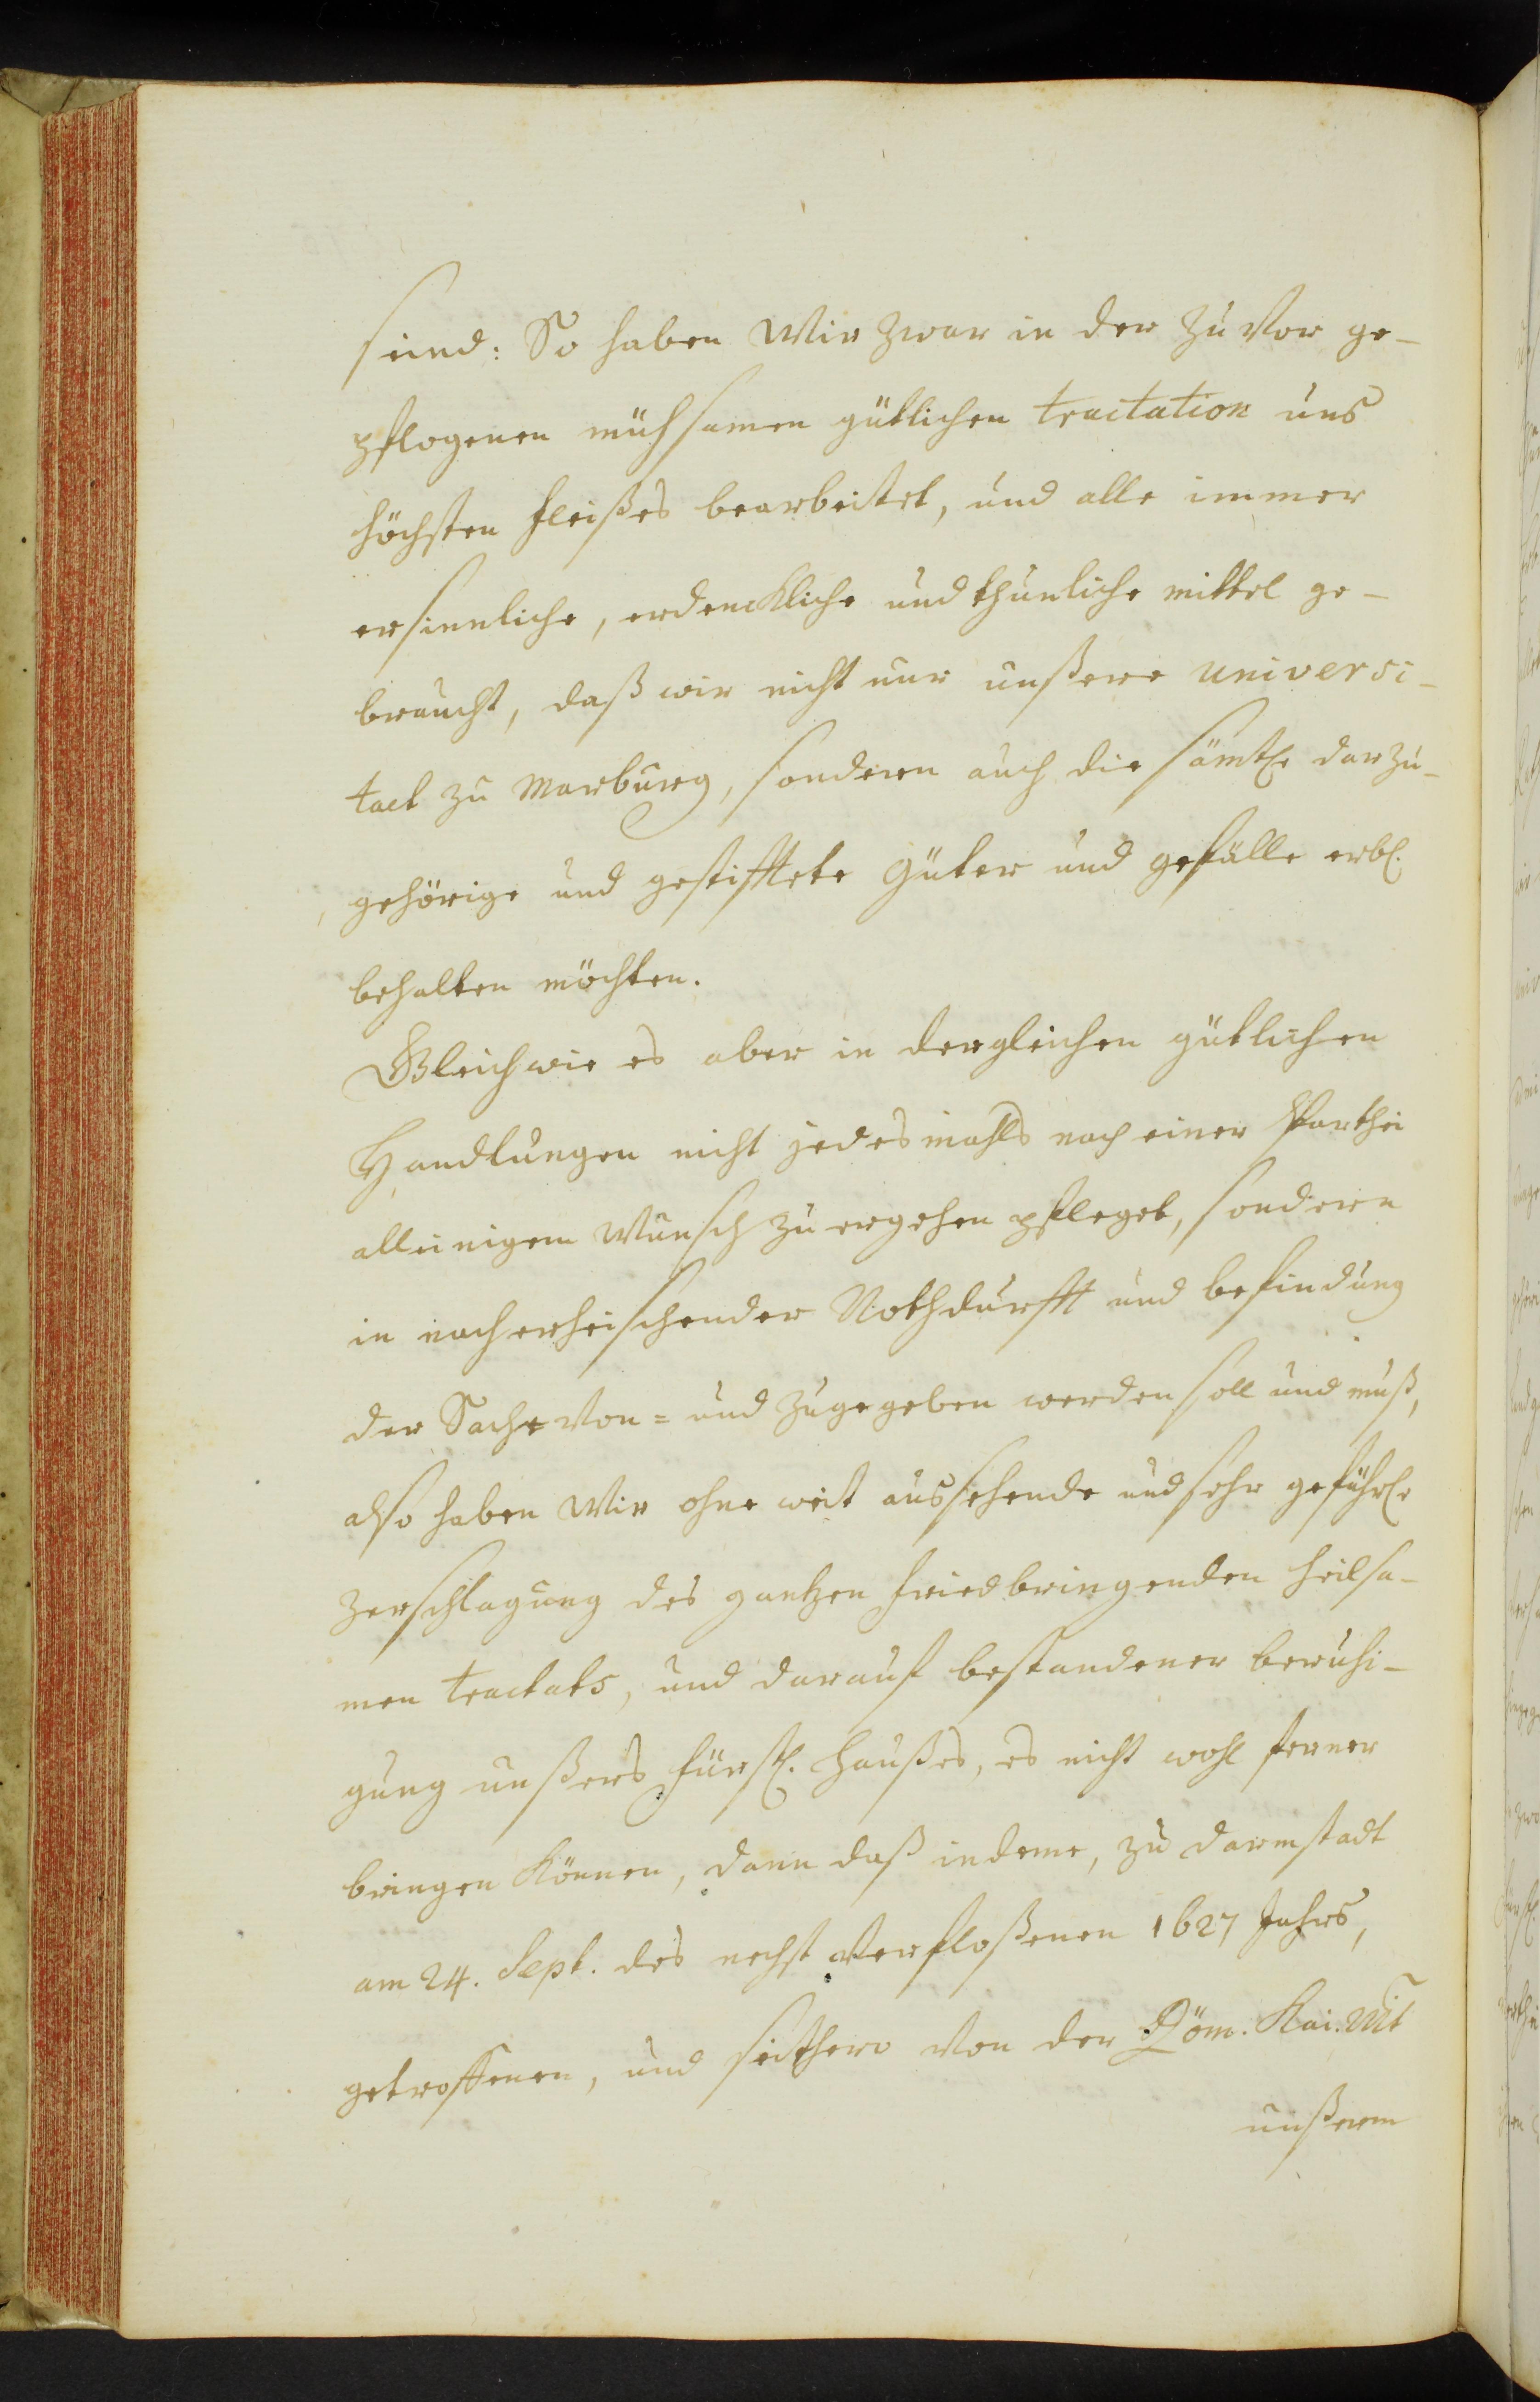 seind: So haben Wir zwar in der zu Vor ge-
pflogenen mühsamen gütlichen tractation uns
höchsten fleißes bearbeitet, und alle immer
ersinnliche, erdenckliche und thunliche mittel ge-
braucht, daß wir nicht nur unßere universi-
taet zu Marburg, sondern auch die sämtl. darzu-
gehörige und gestifftete Güter und gefälle erbl.
behalten möchten.
Gleichwie es aber in dergleichen gütlichen
Handlungen nicht jedesmahls nach einer Parthei
alleinigem Wunsch zu ergehen pfleget, sondern
in nach erheischender Nothdurfft und befindung
der Sache Von- und zugegeben werden soll und muß,
also haben Wir ohne weit aussehende und sehr gefährl.
zerschlagung des gantzen friedbringenden heilsa-
men tractats, und darauf bestandener beruhi-
gung unßers fürstl. Haußes, es nicht wohl ferner
bringen können, dann daß in deme, zu Darmstadt
am 24. Sept. des nechst Verfloßenen 1627 Jahrs,
getroffenen, und seithero Von der Röm. Kai. Mt
unßerm